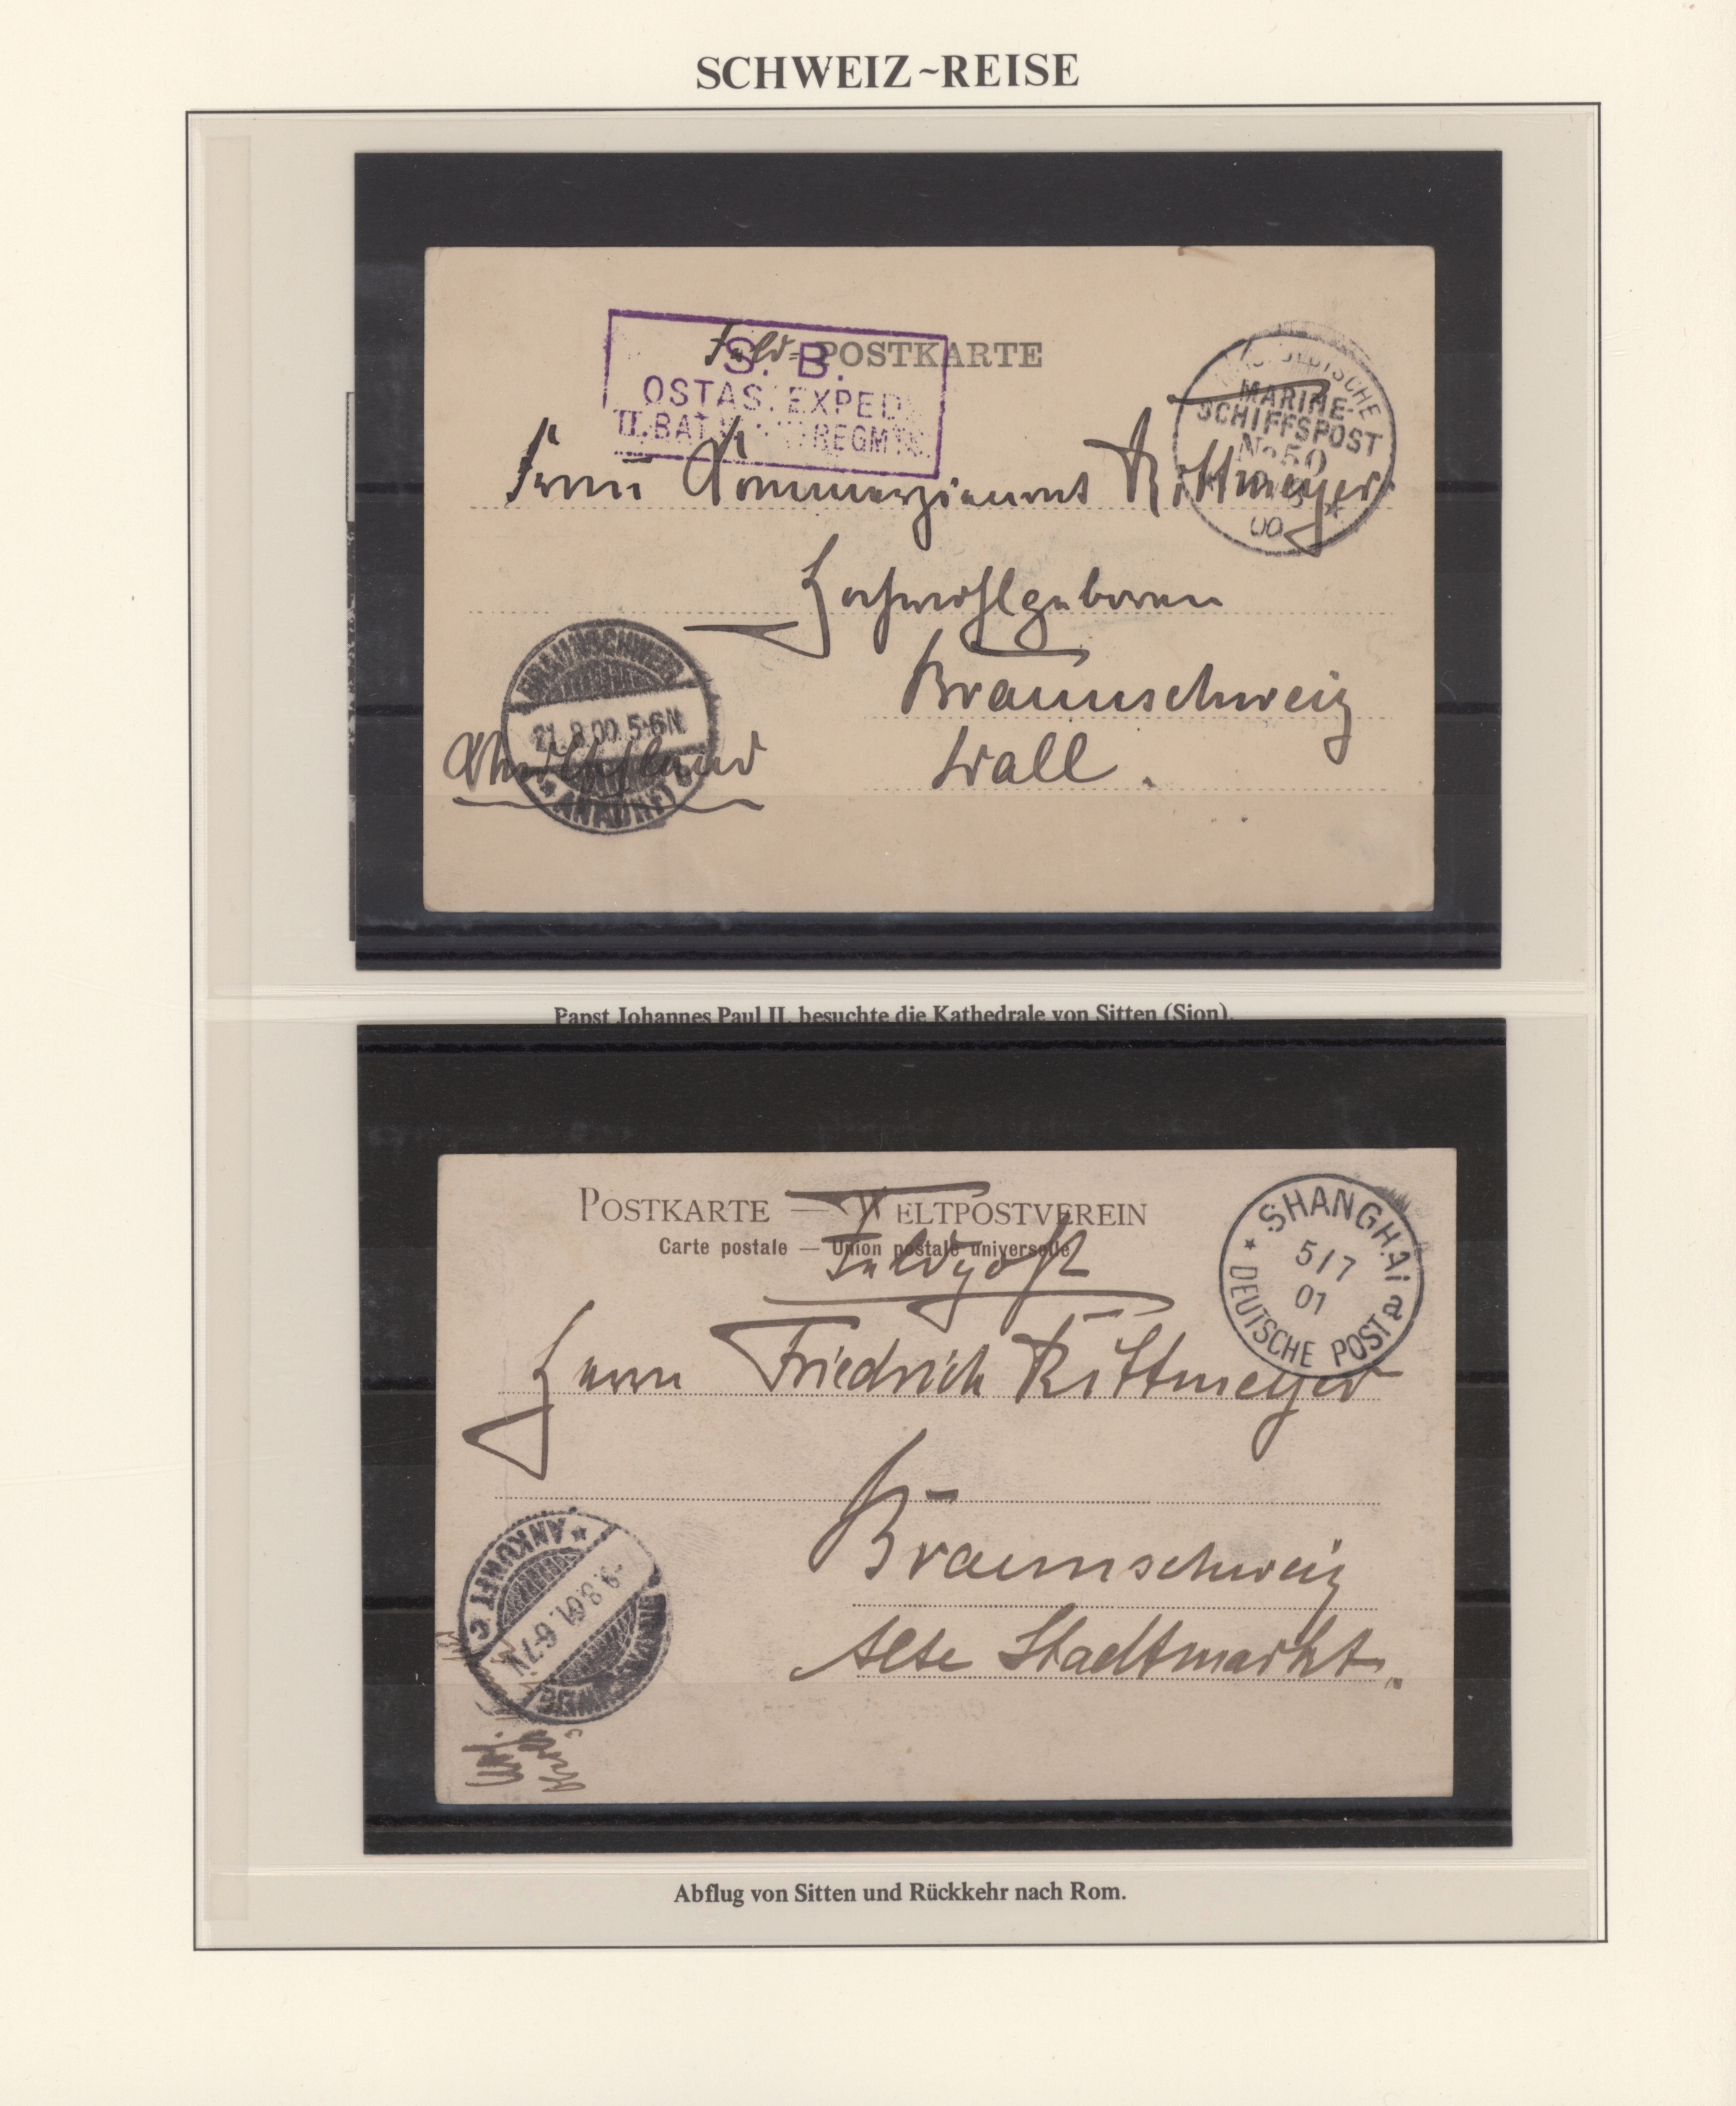 SCHWEIZ~REISE
Feld=POSTKARTE
S. B.
OSTAS. EXPED.
II. BAT. REGMTS.
DEUTSCHE
MARINE-
SCHIFFSPOST
No 50
00
Frau Kommerzienrat Rittmeyer
Hochwohlgeboren
Braunschweig
Wall.
BRAUNSCHWEIG
21.8.00. 5-6N.
ANKUNFT C
Deutschland
Papst Johannes Paul II. besuchte die Kathedrale von Sitten (Sion).
POSTKARTE — WELTPOSTVEREIN
Carte postale — Union postale universelle
Feldpost
SHANGHAI
5/7
01
DEUTSCHE POST a
Herrn Friedrich Rittmeyer
Braunschweig
Alte Stadtmarkt.
BRAUNSCHWEIG
-9.8.01. 6-7N
ANKUNFT C
Abflug von Sitten und Rückkehr nach Rom.